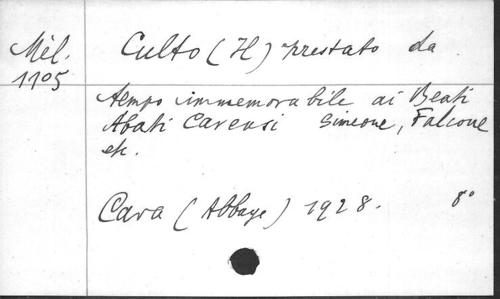 Mél.
1105
Culto (Il) prestato da
tempo immemorabile ai Beati
Abati Cavensi Simeone, Falcone
etc.
Cava (Abbaye) 1928. 8°